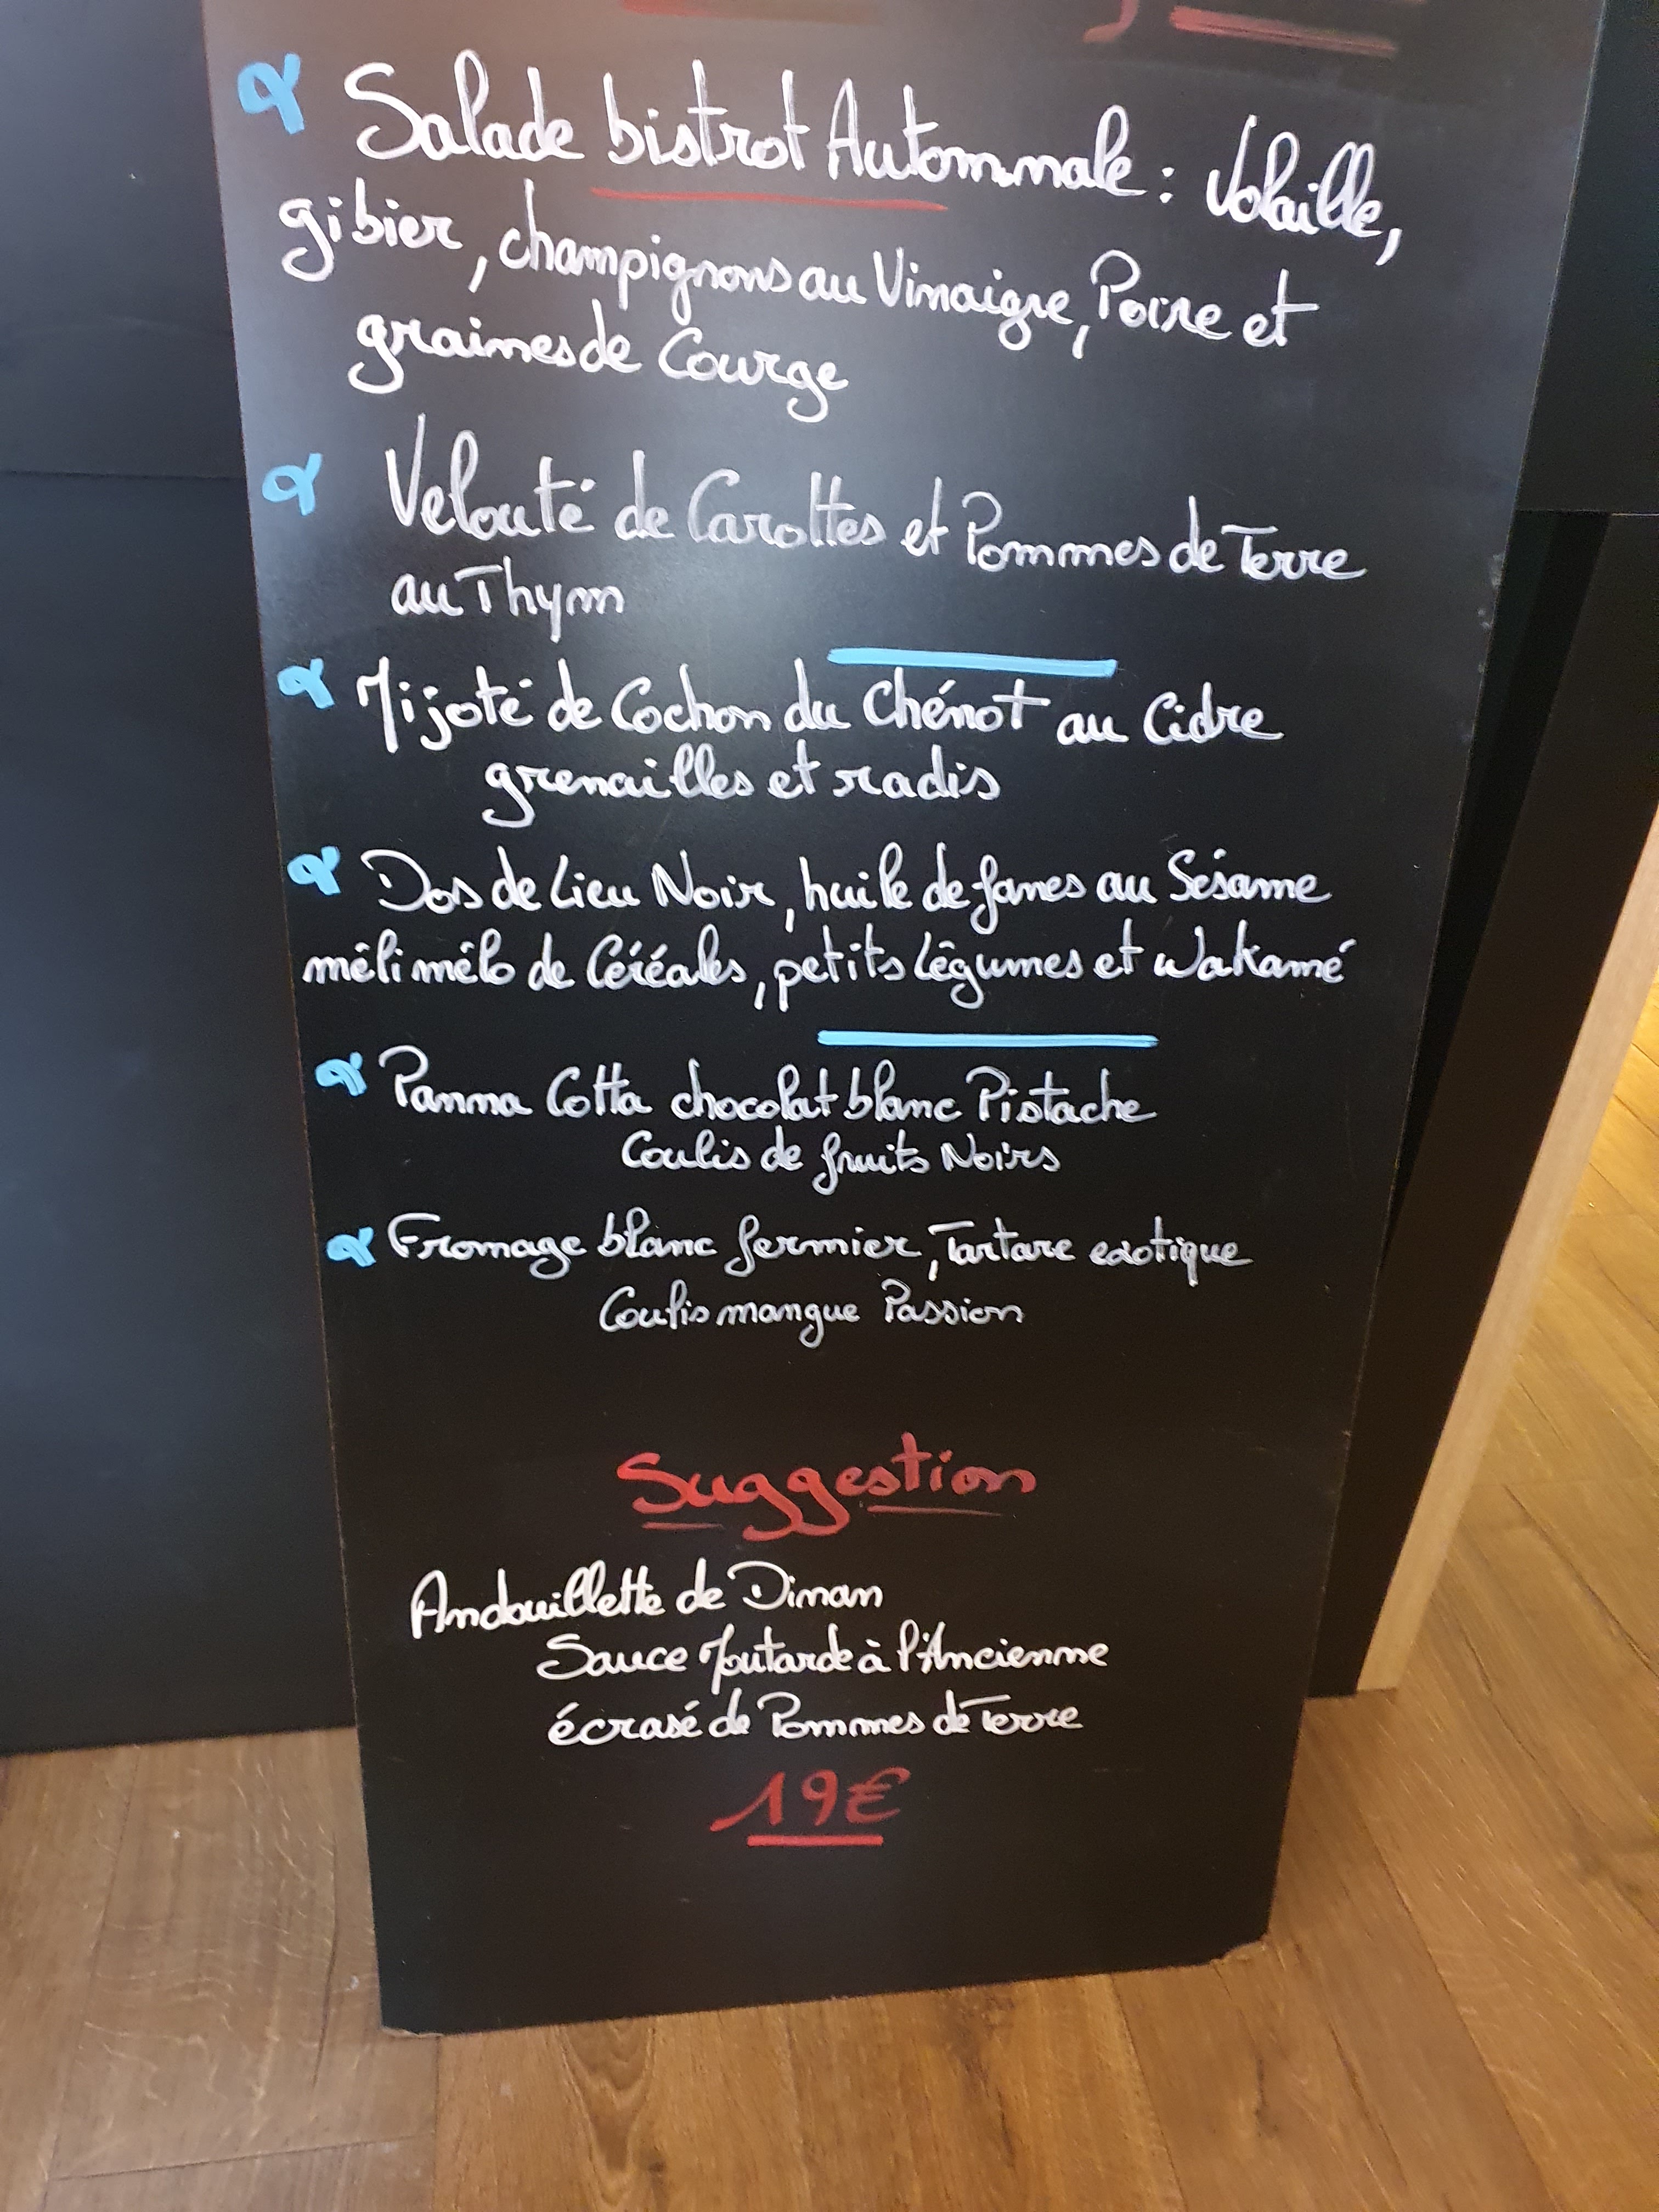 Salade bistrot Automnale : Volaille,
gibier, champignons au Vinaigre, Poire et
graines de Courge
Velouté de Carottes et Pommes de Terre
au Thym
Mijoté de Cochon du Chénot au Cidre
grenailles et radis
Dos de Lieu Noir, huile de fanes au Sésame
méli mélo de Céréales, petits Légumes et Wakamé
Panna Cotta chocolat blanc Pistache
Coulis de fruits Noirs
Fromage blanc fermier, Tartare exotique
Coulis mangue Passion
Suggestion
Andouillette de Dinan
Sauce Moutarde à l'Ancienne
écrasé de Pommes de Terre
19€